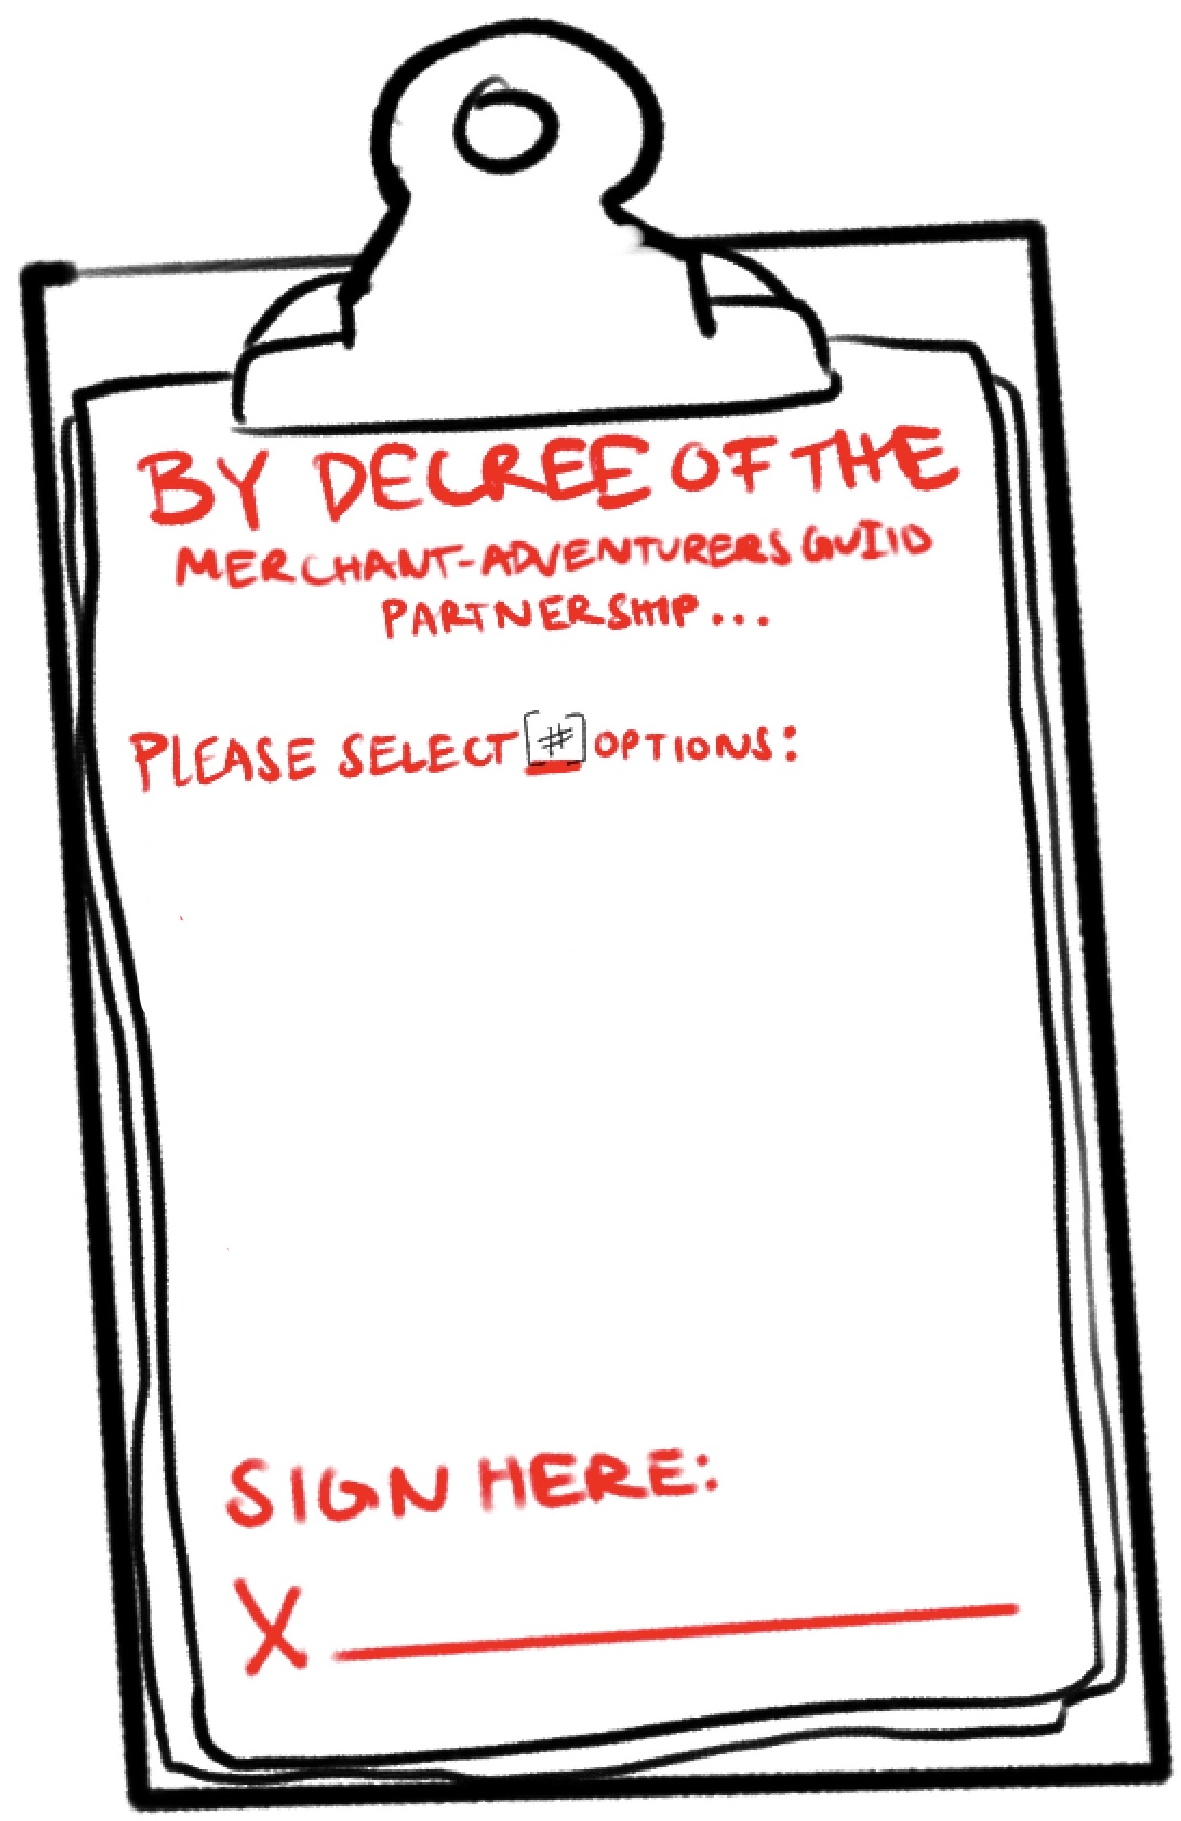 BY DECREE OF THE
MERCHANT-ADVENTURERS GUILD
PARTNERSHIP...
PLEASE SELECT [#] OPTIONS:
SIGN HERE:
X